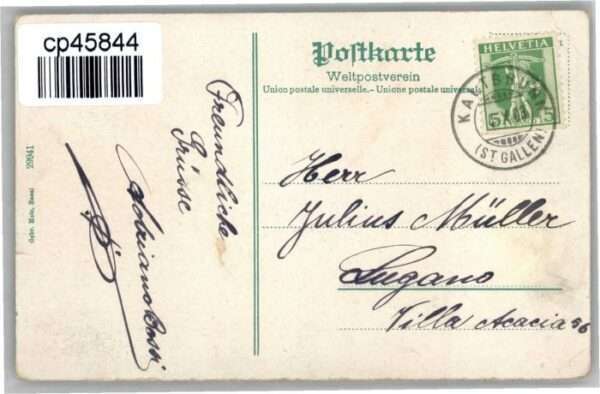 cp45844
Postkarte
Weltpostverein
Union postale universelle.- Unione postale universale
HELVETIA
5 5
KALTBRUNN
(ST GALLEN)
Freundliche
Grüsse
Adriano Bossi
Herr
Julius Müller
Lugano
Villa Acacia 96
Gebr. Metz, Basel 29941